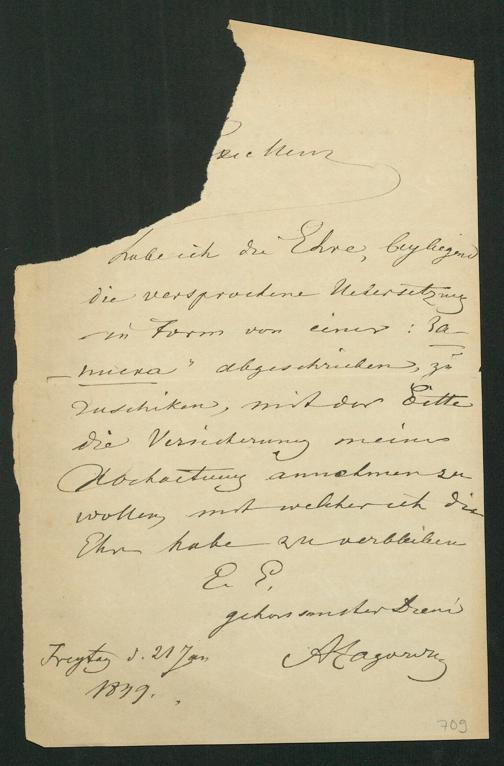 habe ich die Ehre, beyliegend
die versprochene Uebersetzung
in Form von einer : Ta-
"abgeschrieben, zu
zuschiken, mit der Bitte
die Versicherung meiner
Hochachtung annehmen zu
wollen mit welcher ich die
Ehre habe zu verbleiben
E. E.
gehorsamster Diener
Freytag d. 21 Jun
1839.
709